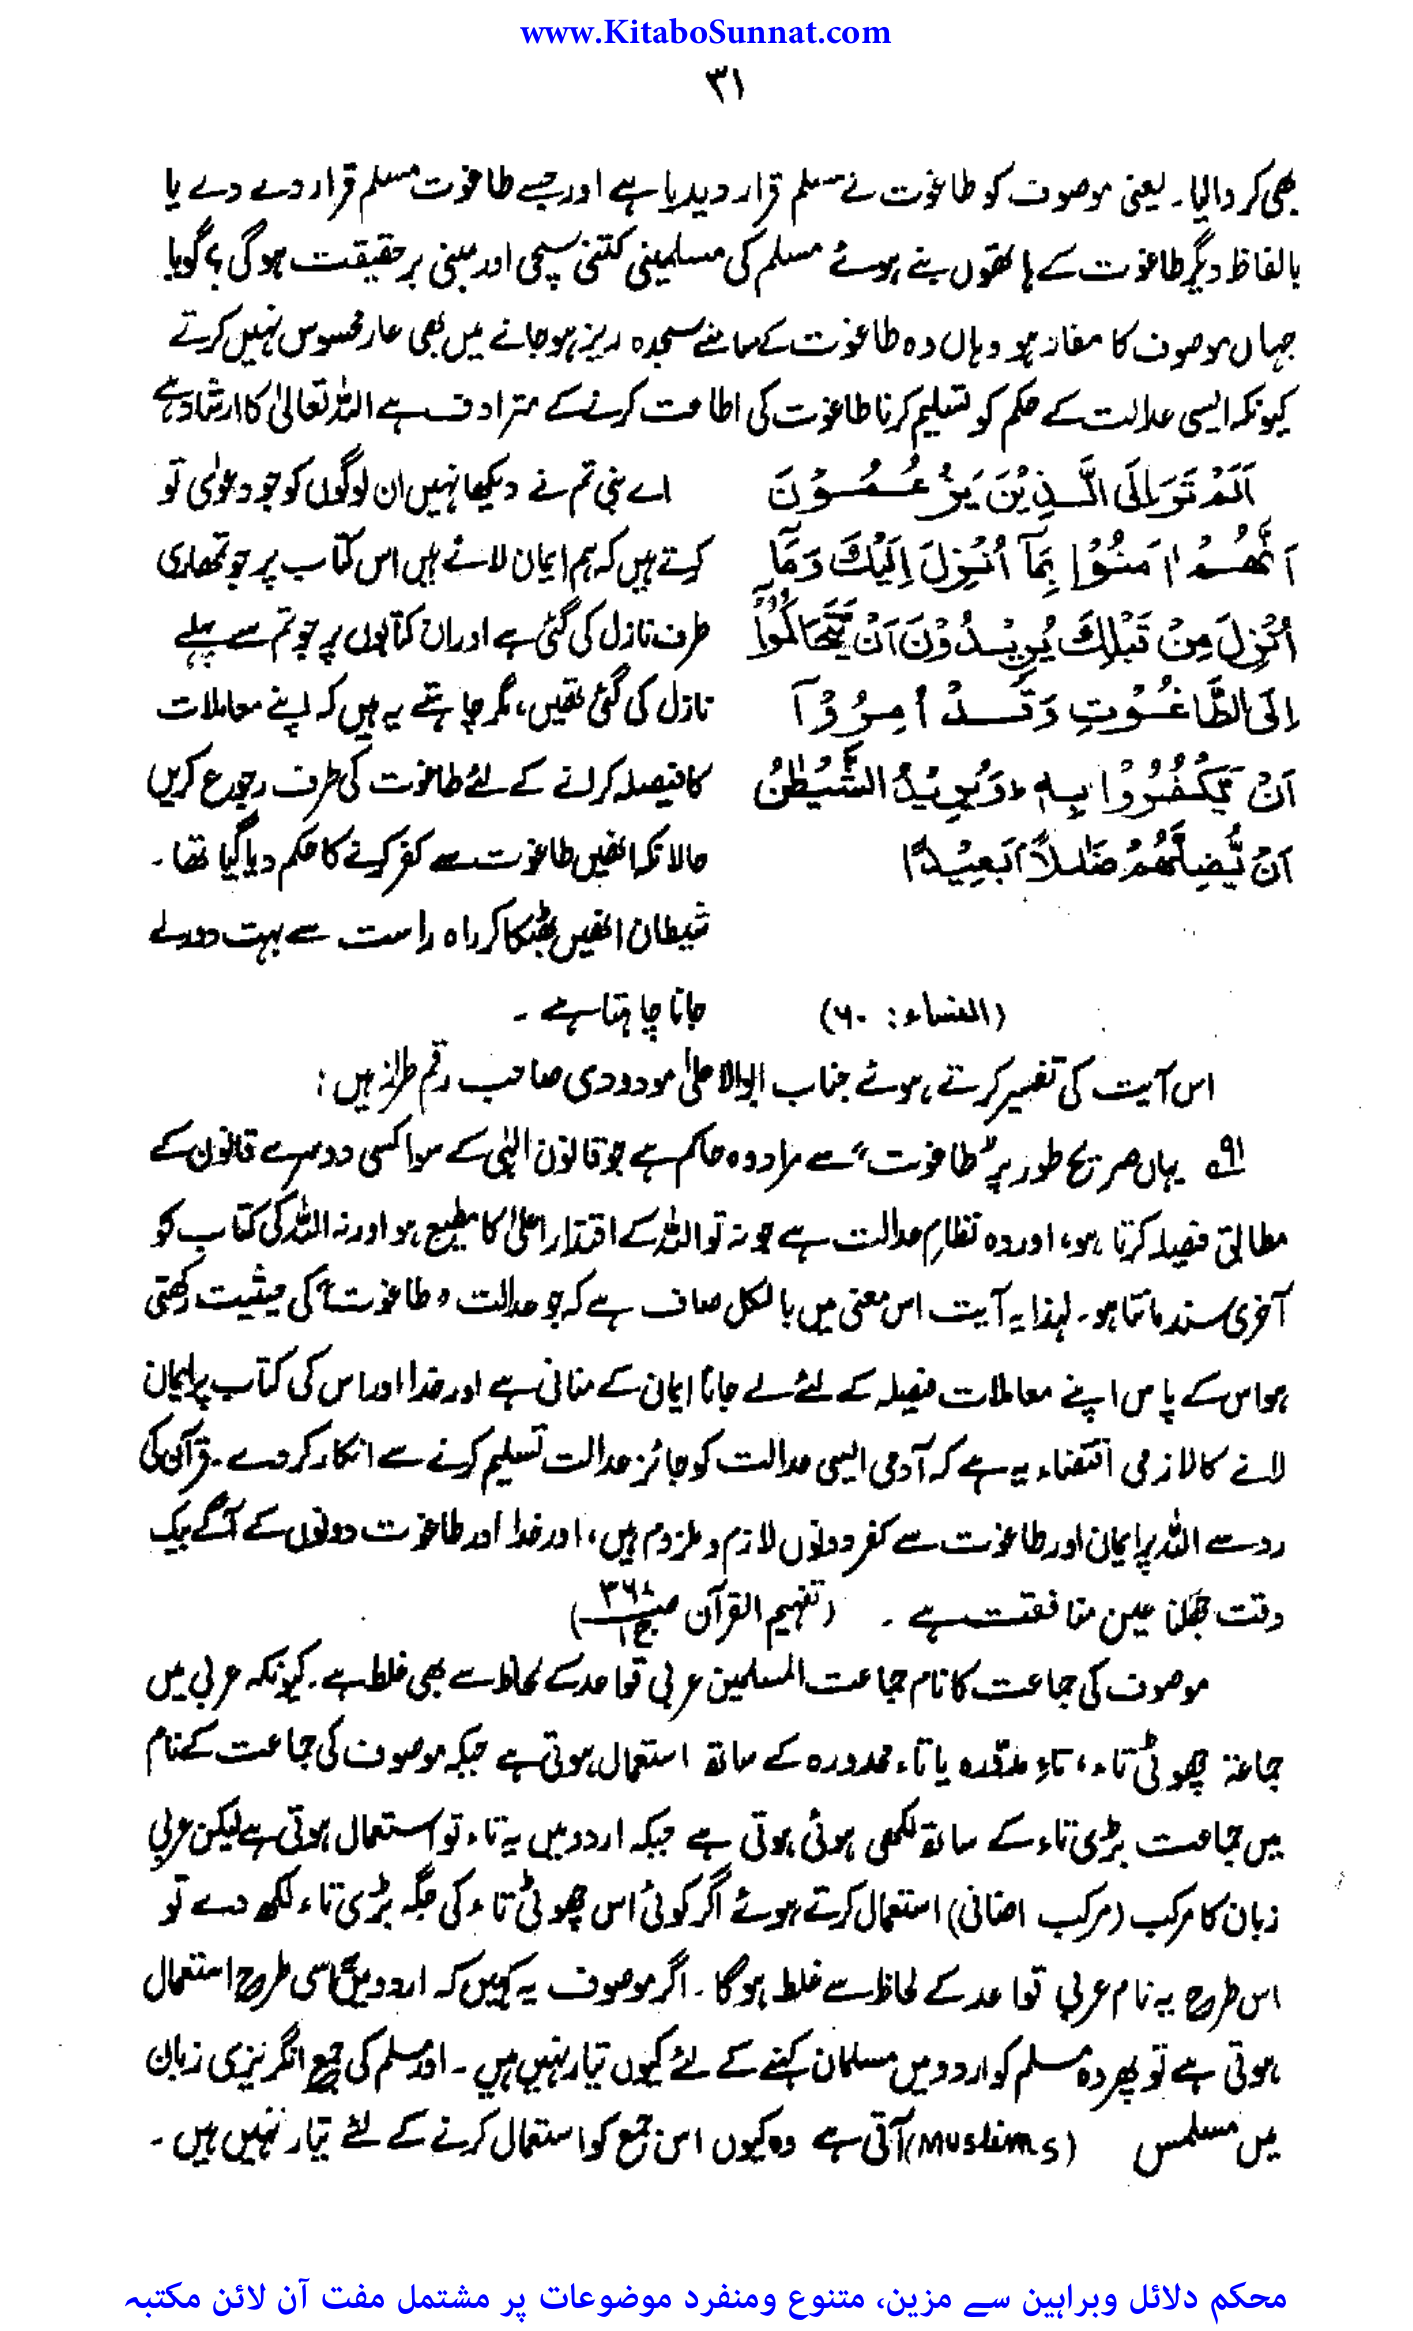 www.KitaboSunnat.com
۳۱
بھی کر دالیا۔ یعنی موصوف کو طاغوت نے مسلم قرار دیدیا ہے اور جسے طاغوت مسلم قرار دے دے یا
بالفاظ دیگر طاغوت کے ہاتھوں بنے ہوئے مسلم کی مسلمینی کتنی سچی اور مبنی بر حقیقت ہوگی؟ گویا
جہاں موصوف کا مفاد ہو وہاں وہ طاغوت کے سامنے سجدہ ریز ہو جانے میں بھی عار محسوس نہیں کرتے
کیونکہ ایسی عدالت کے حکم کو تسلیم کرنا طاغوت کی اطاعت کرنے کے مترادف ہے اللہ تعالیٰ کا ارشاد ہے
اَلَمْ تَرَ اِلَى الَّذِيْنَ يَزْعُمُوْنَ
اَنَّهُمْ اٰمَنُوْا بِمَآ اُنْزِلَ اِلَيْكَ وَمَآ
اُنْزِلَ مِنْ قَبْلِكَ يُرِيْدُوْنَ اَنْ يَّتَحَاكَمُوْٓا
اِلَى الطَّاغُوْتِ وَقَدْ اُمِرُوْٓا
اَنْ يَّكْفُرُوْا بِهٖ ، وَيُرِيْدُ الشَّيْطٰنُ
اَنْ يُّضِلَّهُمْ ضَلٰلًاۢ بَعِيْدًا
(النساء: ۶۰)
اے نبی تم نے دیکھا نہیں ان لوگوں کو جو دعوٰی تو
کرتے ہیں کہ ہم ایمان لائے ہیں اس کتاب پر جو تمھاری
طرف نازل کی گئی ہے اور ان کتابوں پر جو تم سے پہلے
نازل کی گئی تھیں، مگر چاہتے یہ ہیں کہ اپنے معاملات
کا فیصلہ کرانے کے لئے طاغوت کی طرف رجوع کریں
حالانکہ انھیں طاغوت سے کفر کرنے کا حکم دیا گیا تھا۔
شیطان انھیں بھٹکا کر راہ راست سے بہت دور لے
جانا چاہتا ہے ۔
اس آیت کی تفسیر کرتے ہوئے جناب ابوالاعلیٰ مودودی صاحب رقم طراز ہیں:
۹۱ یہاں صریح طور پر "طاغوت" سے مراد وہ حاکم ہے جو قانون الٰہی کے سوا کسی دوسرے قانون کے
مطابق فیصلہ کرتا ہو، اور وہ نظامِ عدالت ہے جو نہ تو اللہ کے اقتدار اعلیٰ کا مطیع ہو اور نہ اللہ کی کتاب کو
آخری سند مانتا ہو۔ لہذا یہ آیت اس معنی میں بالکل صاف ہے کہ جو عدالت "طاغوت" کی حیثیت رکھتی
ہو اس کے پاس اپنے معاملات فیصلہ کے لئے لے جانا ایمان کے منافی ہے اور خدا اور اس کی کتاب پر ایمان
لانے کا لازمی اقتضاء یہ ہے کہ آدمی ایسی عدالت کو جائز عدالت تسلیم کرنے سے انکار کر دے۔ قرآن کی
رو سے اللہ پر ایمان اور طاغوت سے کفر دونوں لازم و ملزوم ہیں، اور خدا اور طاغوت دونوں کے آگے بیک
وقت جھکنا عین منافقت ہے ۔ (تفہیم القرآن ص ج ۱)
موصوف کی جماعت کا نام جماعت المسلمین عربی قواعد کے لحاظ سے بھی غلط ہے۔ کیونکہ عربی میں
جماعۃ چھوٹی تاء، تاءِ مدوّرہ یا تاء مدورہ کے ساتھ استعمال ہوتی ہے جبکہ موصوف کی جماعت کے نام
میں جماعت بڑی تاء کے ساتھ لکھی ہوئی ہوتی ہے جبکہ اردو میں یہ تاء تو استعمال ہوتی ہے لیکن عربی
زبان کا مرکب (مرکب اضافی) استعمال کرتے ہوئے اگر کوئی اس چھوٹی تاء کی جگہ بڑی تاء لکھ دے تو
اس طرح یہ نام عربی قواعد کے لحاظ سے غلط ہو گا۔ اگر موصوف یہ کہیں کہ اردو میں اسی طرح استعمال
ہوتی ہے تو پھر وہ مسلم کو اردو میں مسلمان کہنے کے لئے کیوں تیار نہیں ہیں۔ اور مسلم کی جمع انگریزی زبان
میں مسلمس (Muslims) آتی ہے وہ کیوں اس جمع کو استعمال کرنے کے لئے تیار نہیں ہیں۔
محکم دلائل وبراہین سے مزین، متنوع ومنفرد موضوعات پر مشتمل مفت آن لائن مکتبہ